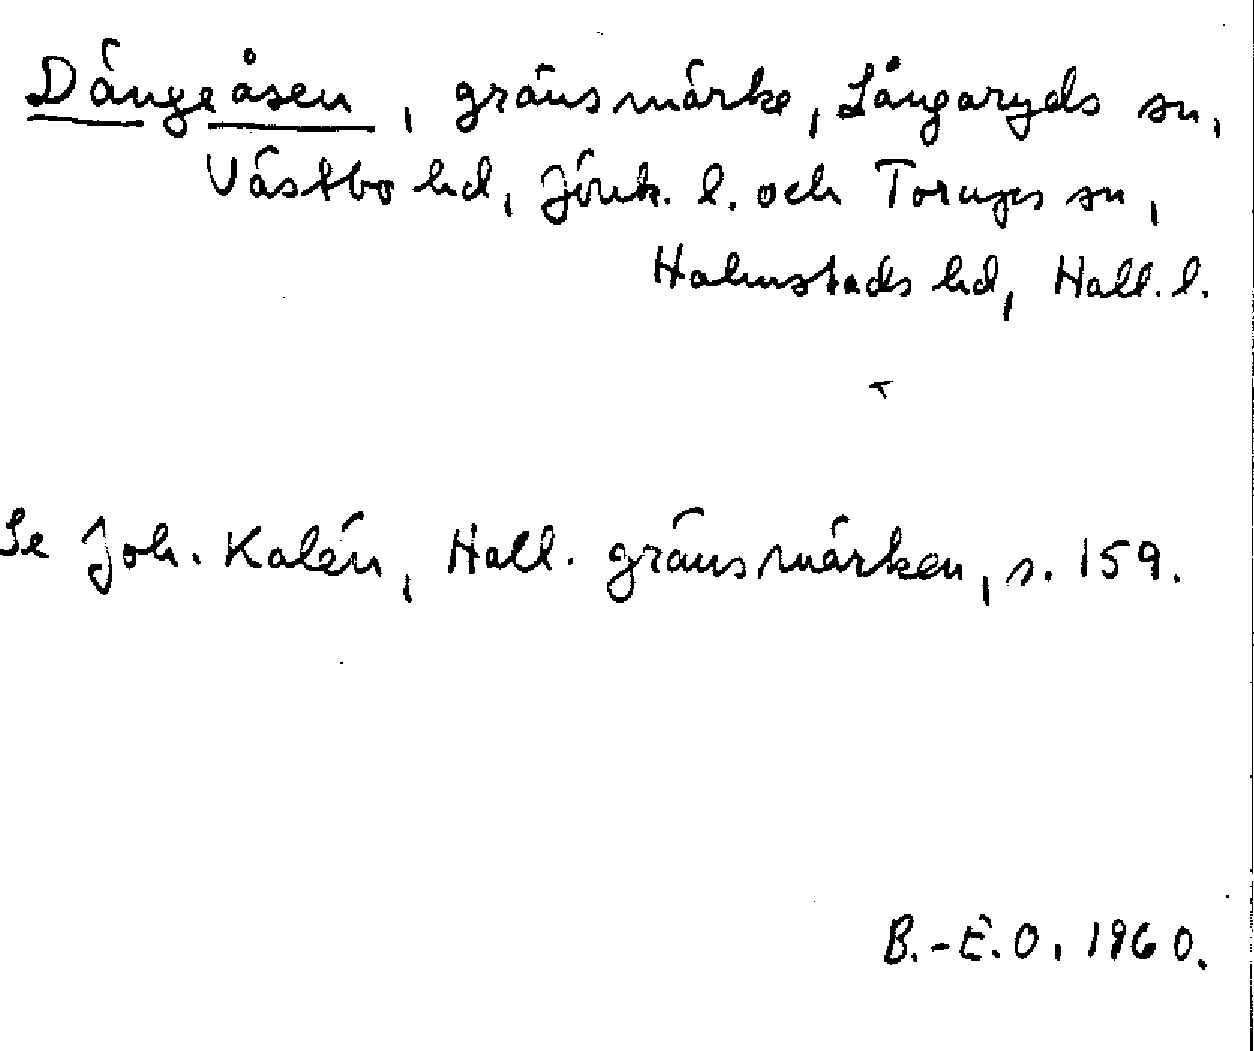 Dängeåsen, gränsmärke, Långaryds sn,
Västbo hd, Jönk. l. och Torups sn,
Halmstads hd, Hall. l.
Se Joh. Kalén, Hall. gränsmärken, s. 159.
B.-E.O. 1960.